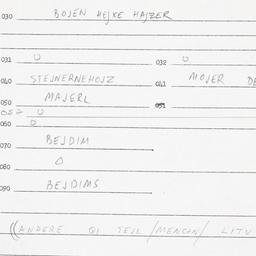 030 BOJEN HEJXE HAJZER
031 U 032 U
040 STEJNERNEHOJZ 041 MOJER DA
050 MAJERL 051
052 U
060 U
070 BEJDIM
080 O
090 BEJDIMS
((ANDERE QI TEJL/MENCHN/ LITU